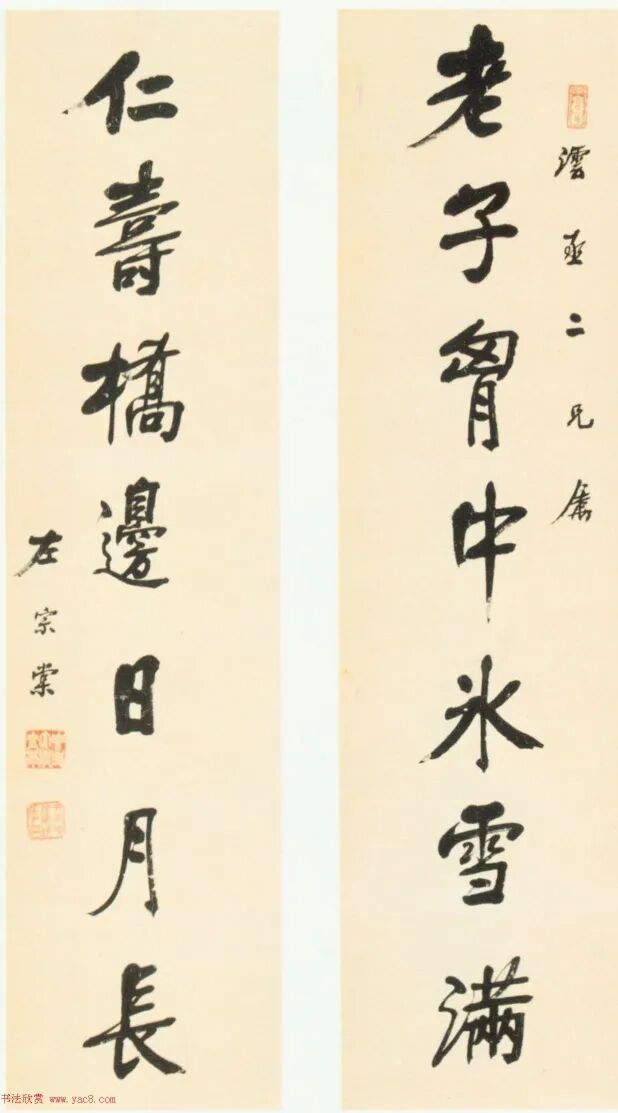 澐二兄属
老子胷中氷雪滿
仁壽橋邊日月長
左宗棠
书法欣赏 www.yac8.com